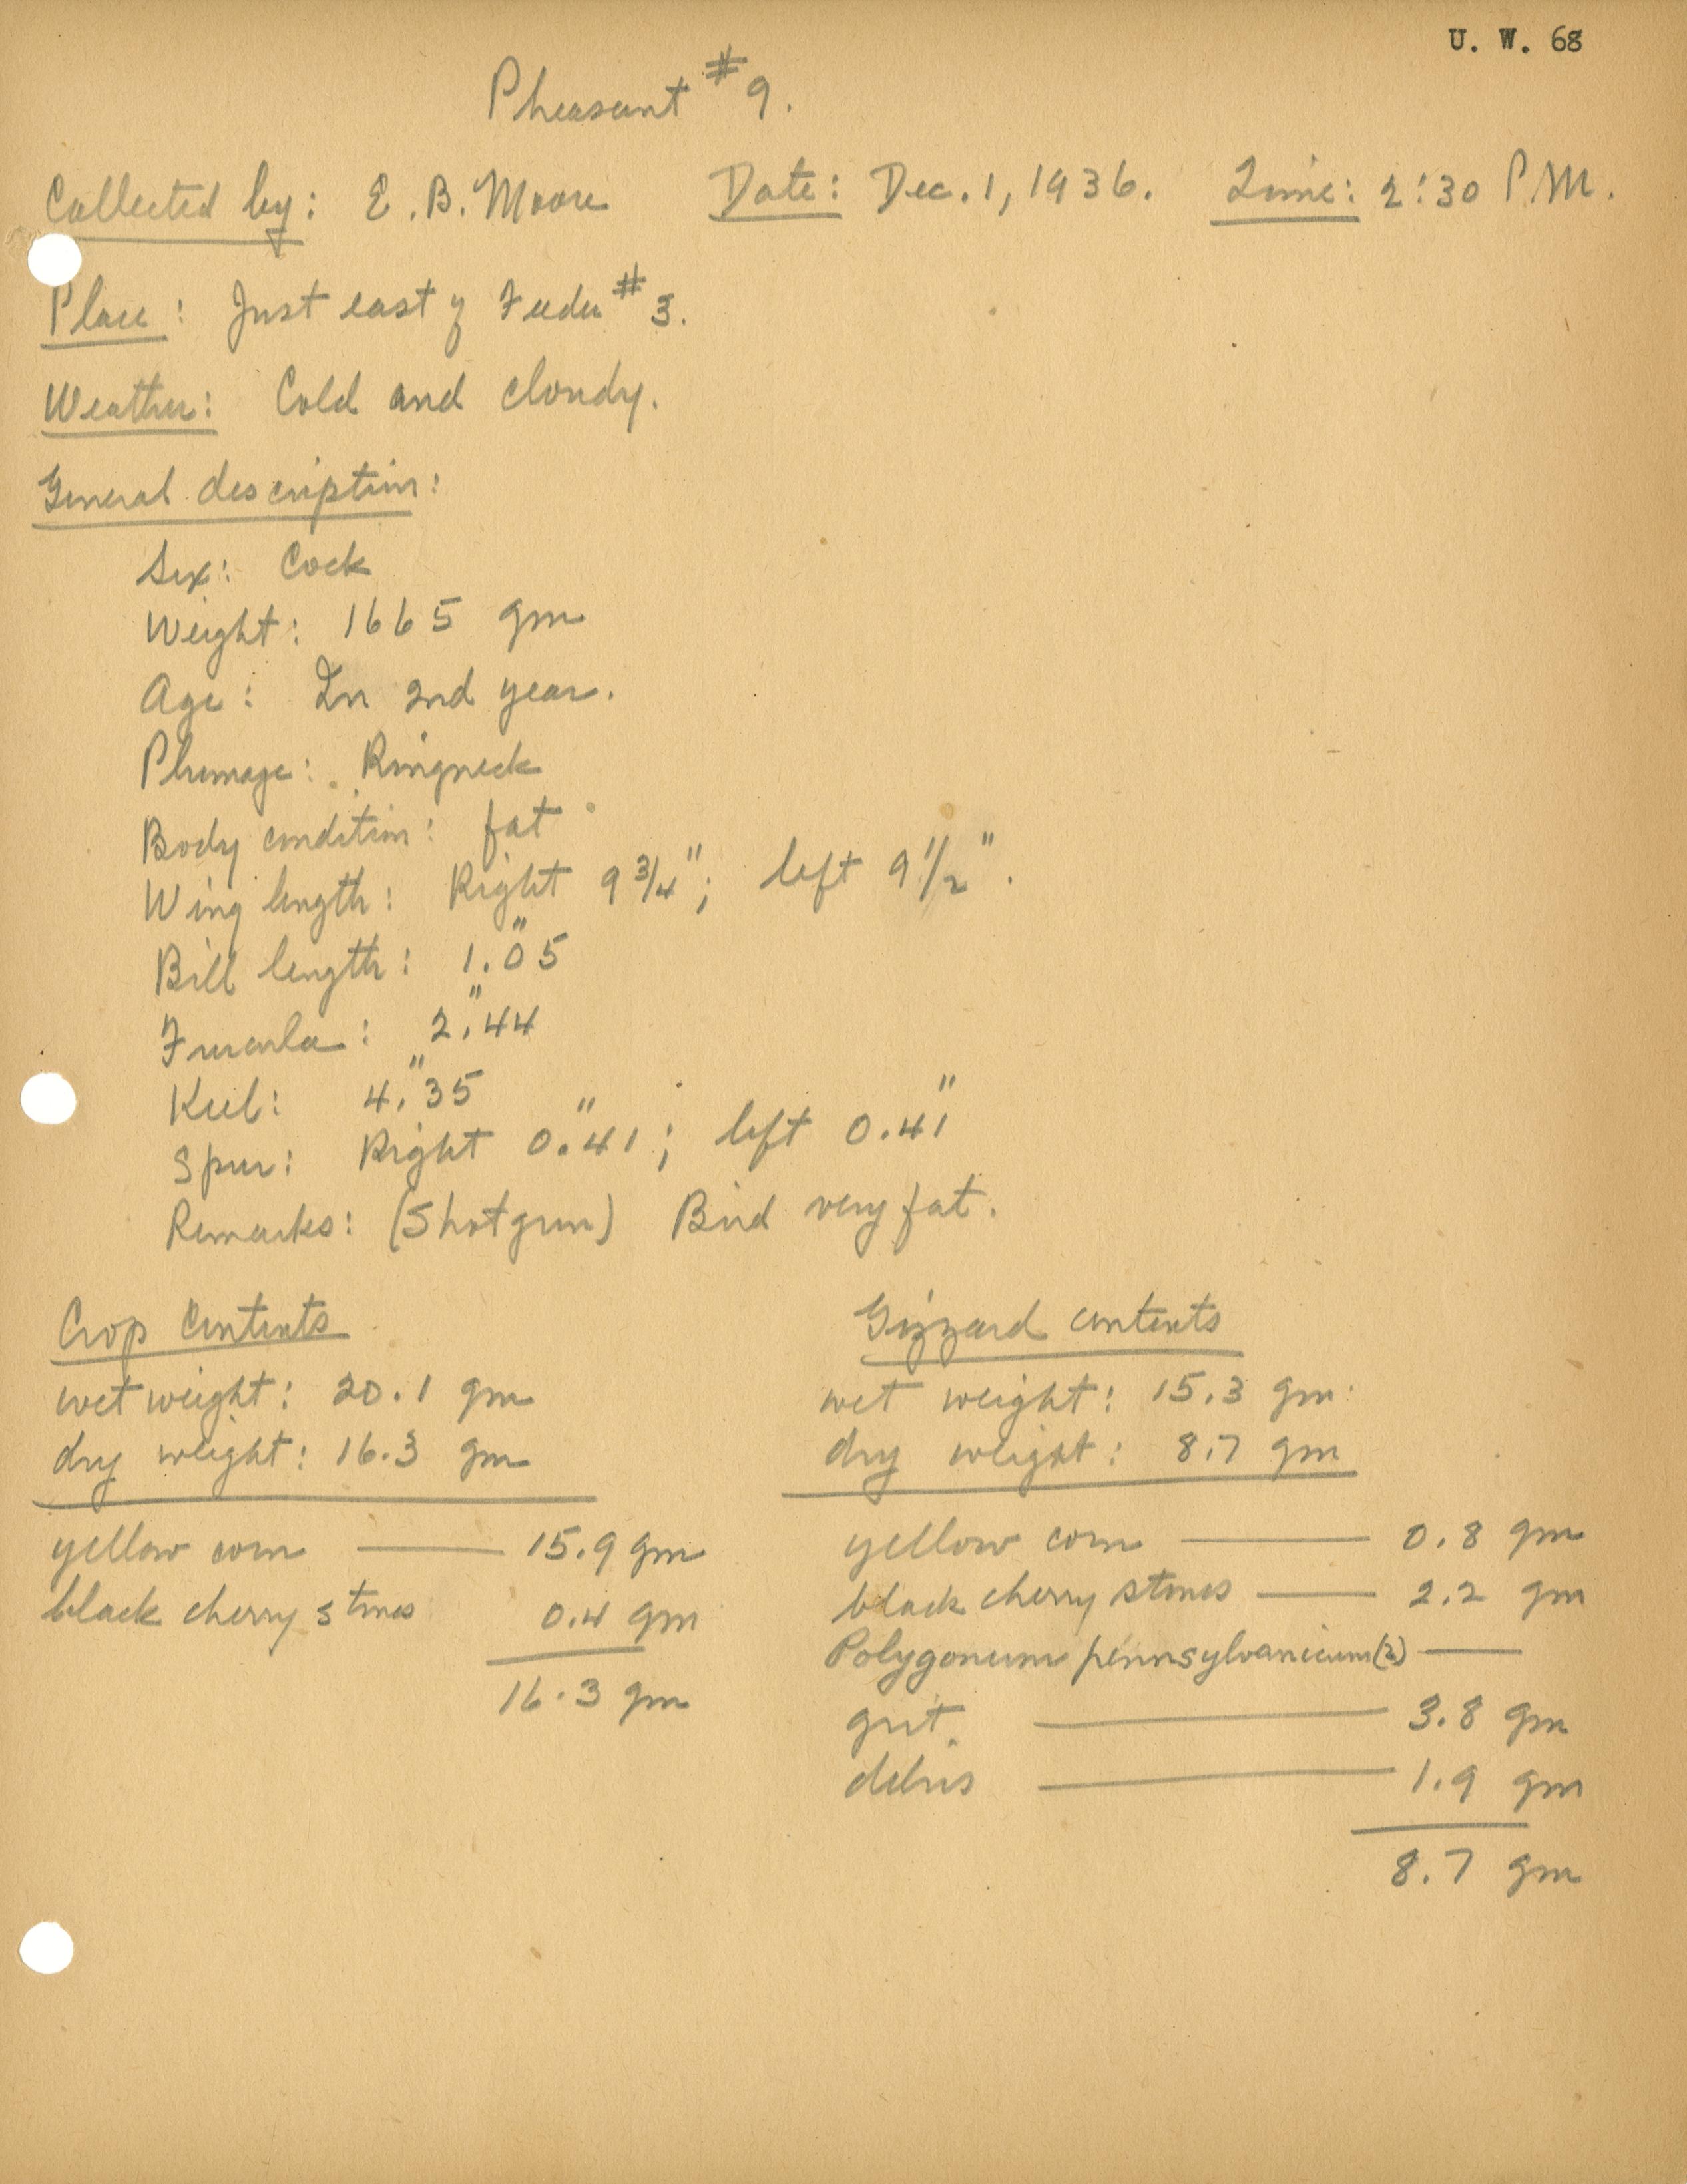 U. W. 68
Pheasant #9.
Collected by: E. B. Moore Date: Dec. 1, 1936. Time: 2:30 P.M.
Place: Just east of Feeder #3.
Weather: Cold and cloudy.
General description:
Sex: Cock
Weight: 1665 gm
Age: In 2nd year.
Plumage: Ringneck
Body condition: fat
Wing length: Right 9 3/4"; left 9 1/2".
Bill length: 1."05
Furcula: 2."44
Keel: 4."35
Spur: Right 0."41; left 0.41"
Remarks: (Shotgun) Bird very fat.
Crop Contents
wet weight: 20.1 gm
dry weight: 16.3 gm
yellow corn — 15.9 gm
black cherry stones 0.4 gm
16.3 gm
Gizzard contents
wet weight: 15.3 gm
dry weight: 8.7 gm
yellow corn — 0.8 gm
black cherry stones — 2.2 gm
Polygonum pennsylvanicum (2) —
grit — 3.8 gm
debris — 1.9 gm
8.7 gm